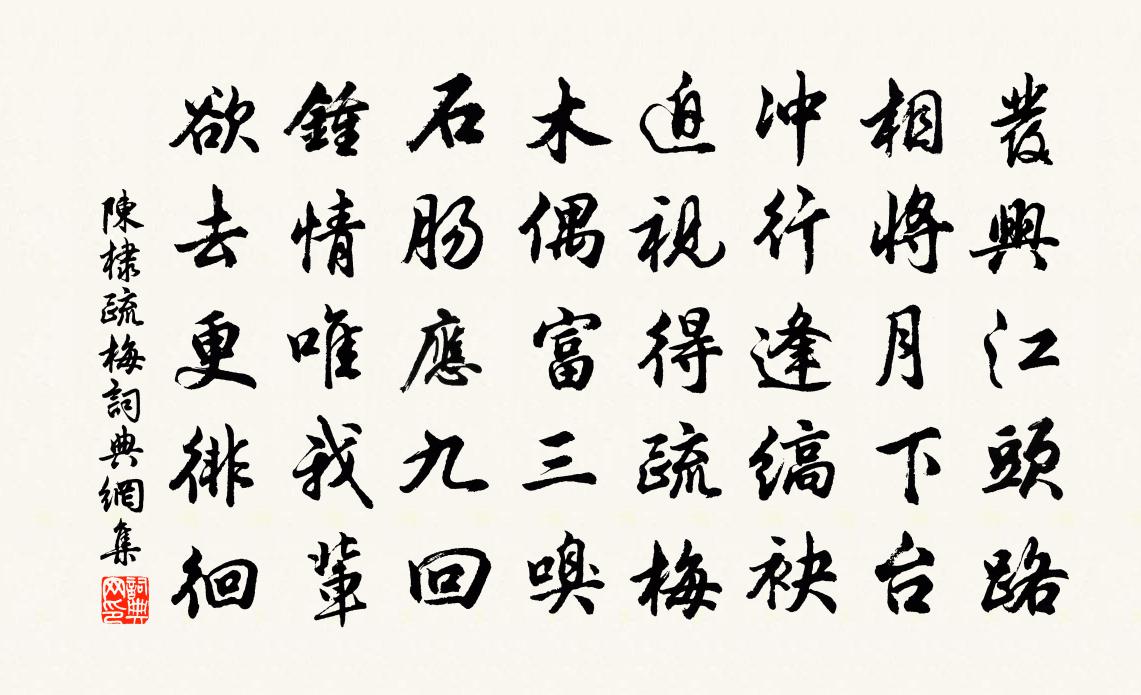 發興江頭路
相將月下台
冲行逢縞袂
迫視得疏梅
木偶富三嗅
石肠應九回
鍾情唯我輩
欲去更徘徊
陳棣疏梅詞典網集
詞典
网印